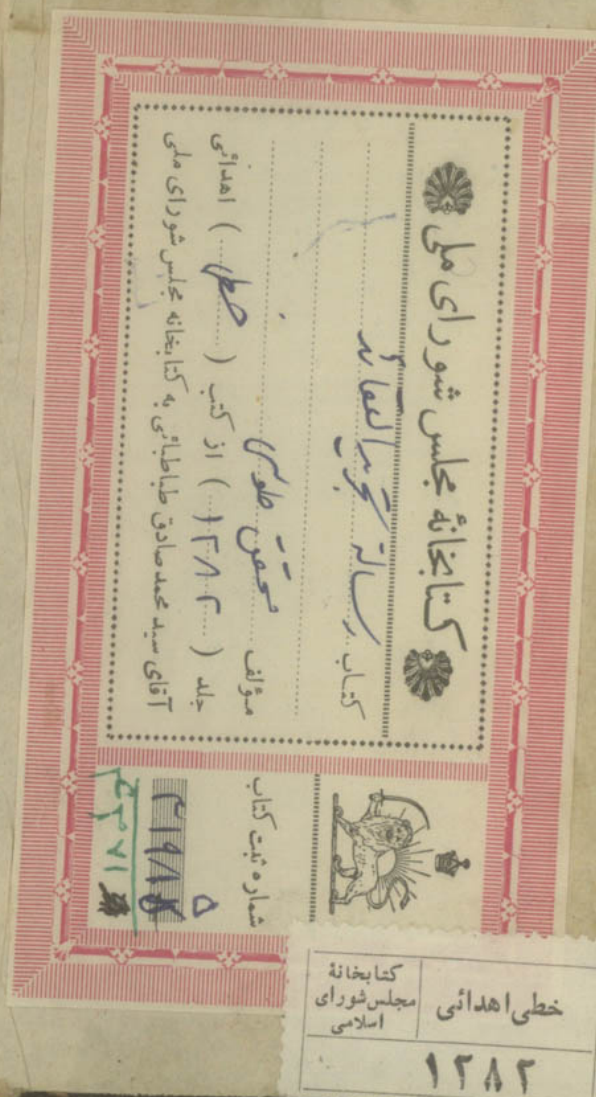 کتابخانهٔ مجلس شورای ملی
کتاب رسالة تجرید العقائد
مؤلف محقق طوسی
جلد ( ۱۲۸۲ ) از کتب ( خطی ) اهدائی
آقای سید محمد صادق طباطبائی به کتابخانه مجلس شورای ملی
شماره ثبت کتاب
خطی اهدائی
کتابخانهٔ
مجلس شورای
اسلامی
۱۲۸۲